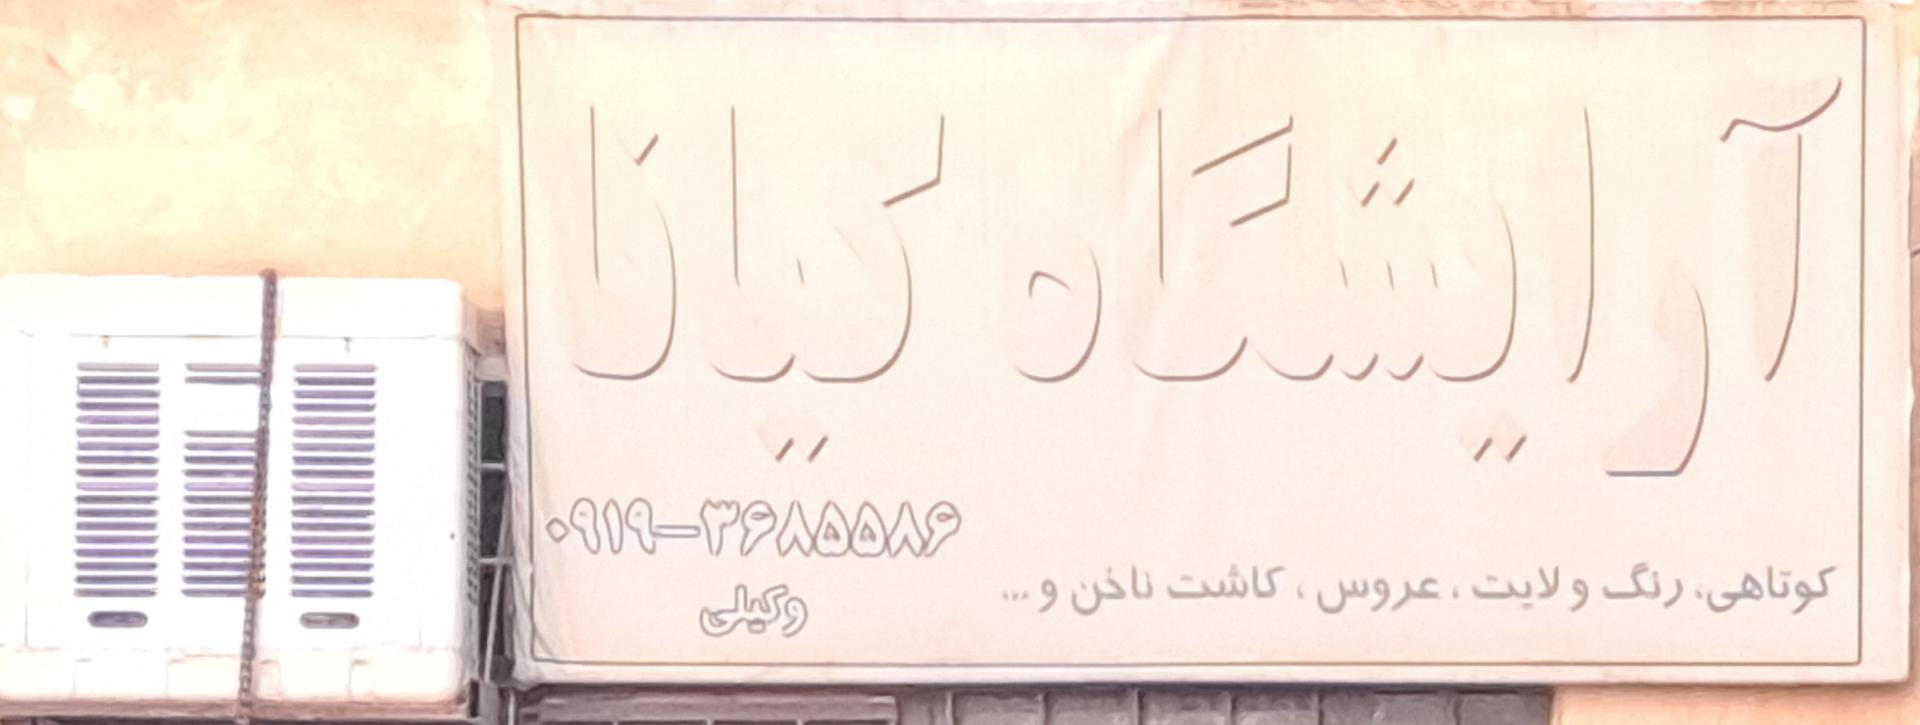 آرایشگاه کیانا
۰۹۱۹-۳۶۸۵۵۸۶
کوتاهی، رنگ و لایت، عروس، کاشت ناخن و ...
وکیلی